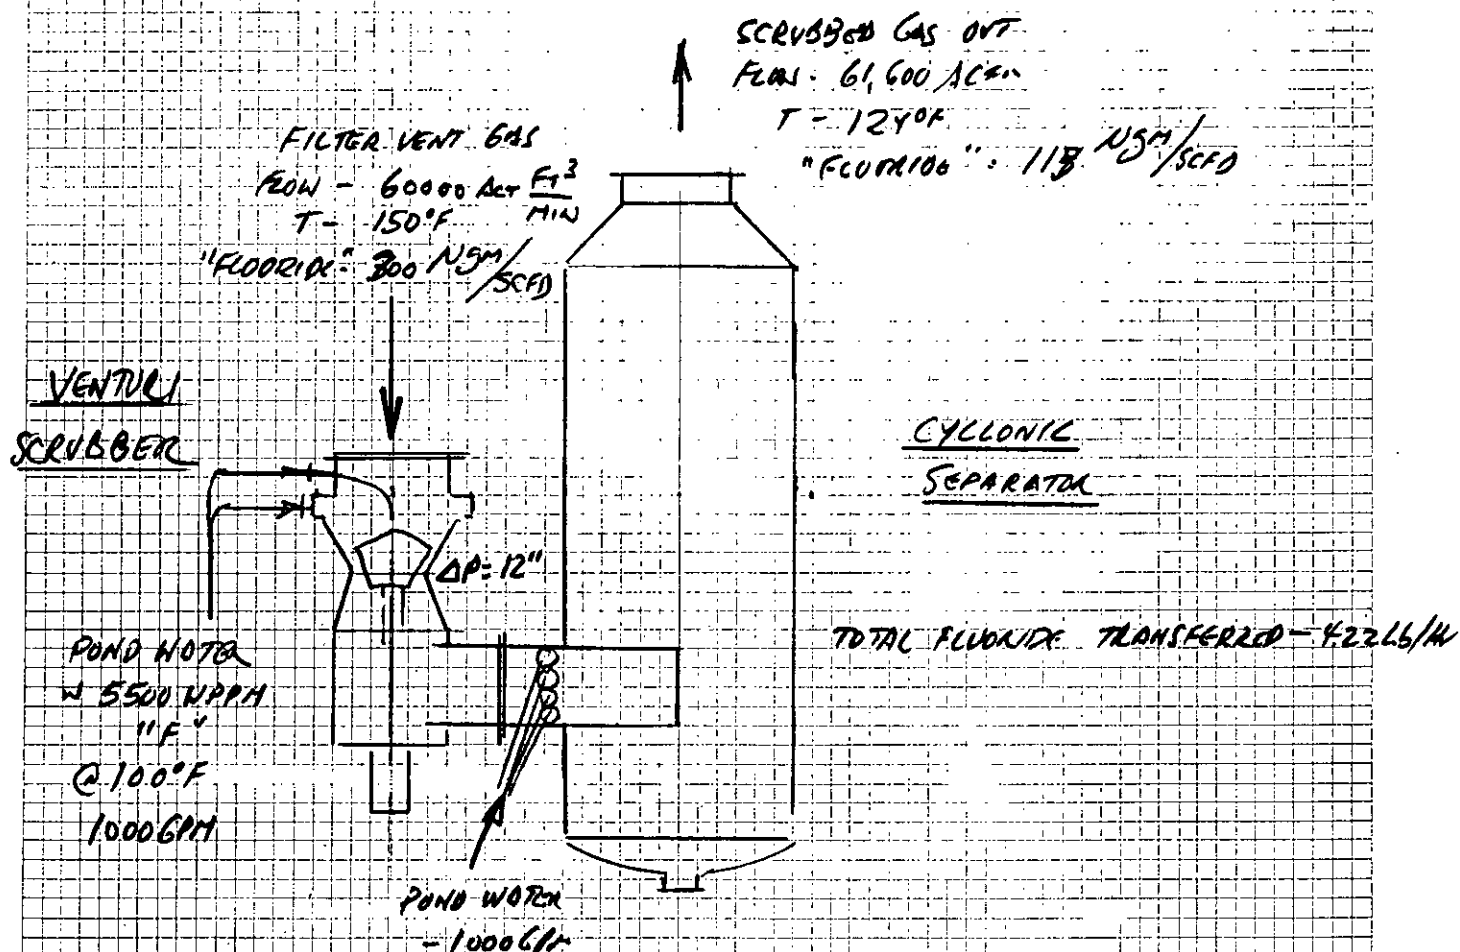 SCRUBBED GAS OUT
FLOW - 61,600 ACFM
T - 124°F
"FLUORIDE":
FILTER VENT GAS
FLOW - 60000 ACT FT³/MIN
T - 150°F
"FLUORIDE" 300 MGM/SCFD
VENTURI
SCRUBBER
CYCLONIC
SEPARATOR
ΔP = 12"
TOTAL FLUORIDE TRANSFERRED - 4.22 Lb/Hr
POND WATER
W 5500 WPPM
"F"
@ 100°F
1000 GPM
POND WATER
- 1000 GPM